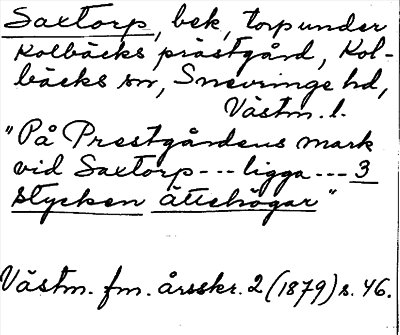 Saxtorp, bek, torp under
Kolbäcks prästgård, Kol-
bäcks sn, Snevringe hd,
Västm. l.
"På Prestgårdens mark
vid Saxtorp --- ligga --- 3
stycken Ättehögar"
Västm. fm. årsskr. 2 (1879) s. 46.